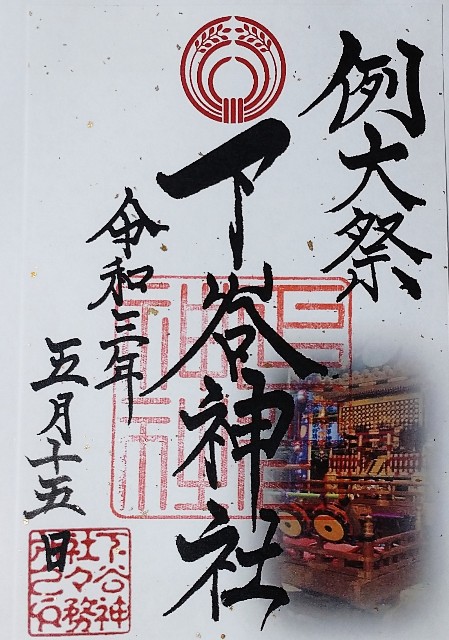 例大祭
下谷神社
令和三年
五月十五日
下谷神
社々務
所之印